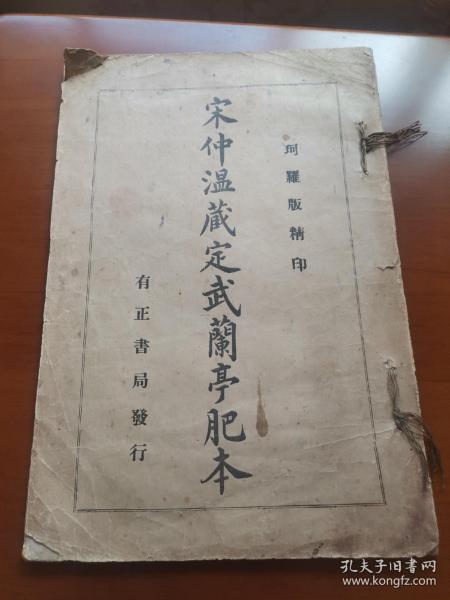 珂羅版精印
宋仲温藏定武蘭亭肥本
有正書局發行
孔夫子旧书网
www.kongfz.com